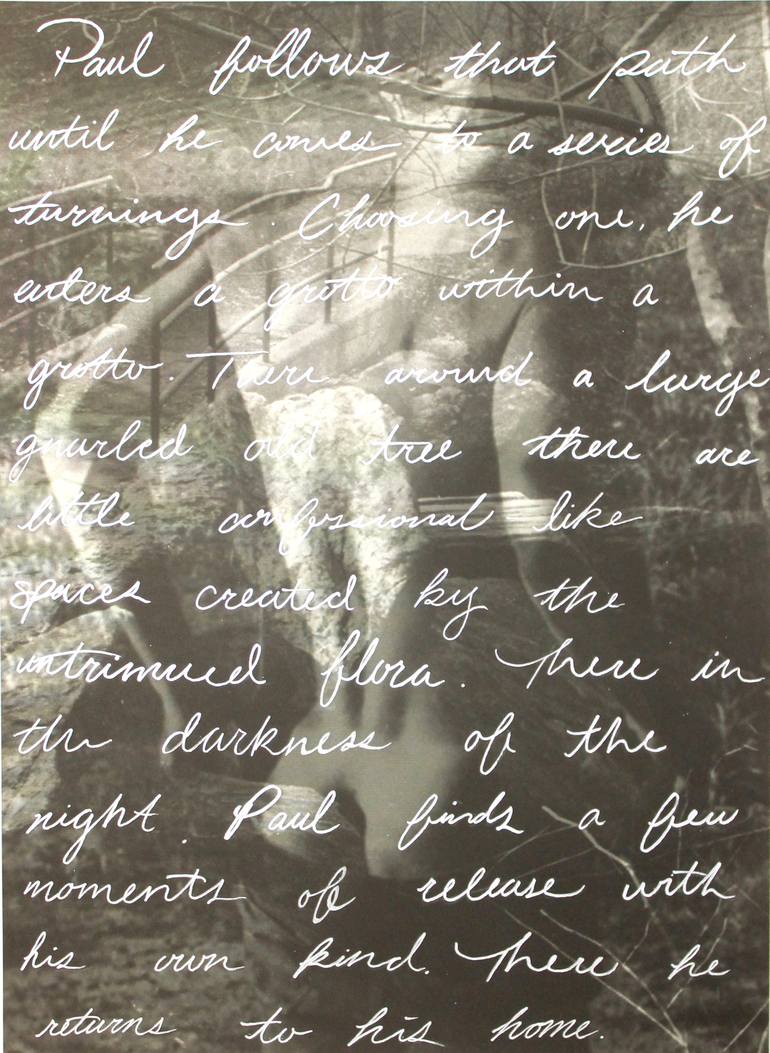 Paul follows that path
until he comes to a series of
turnings. Choosing one, he
enters a grotto within a
grotto. There around a large
gnarled old tree there are
little confessional like
spaces created by the
untrimmed flora. There in
the darkness of the
night. Paul finds a few
moments of release with
his own kind. There he
returns to his home.